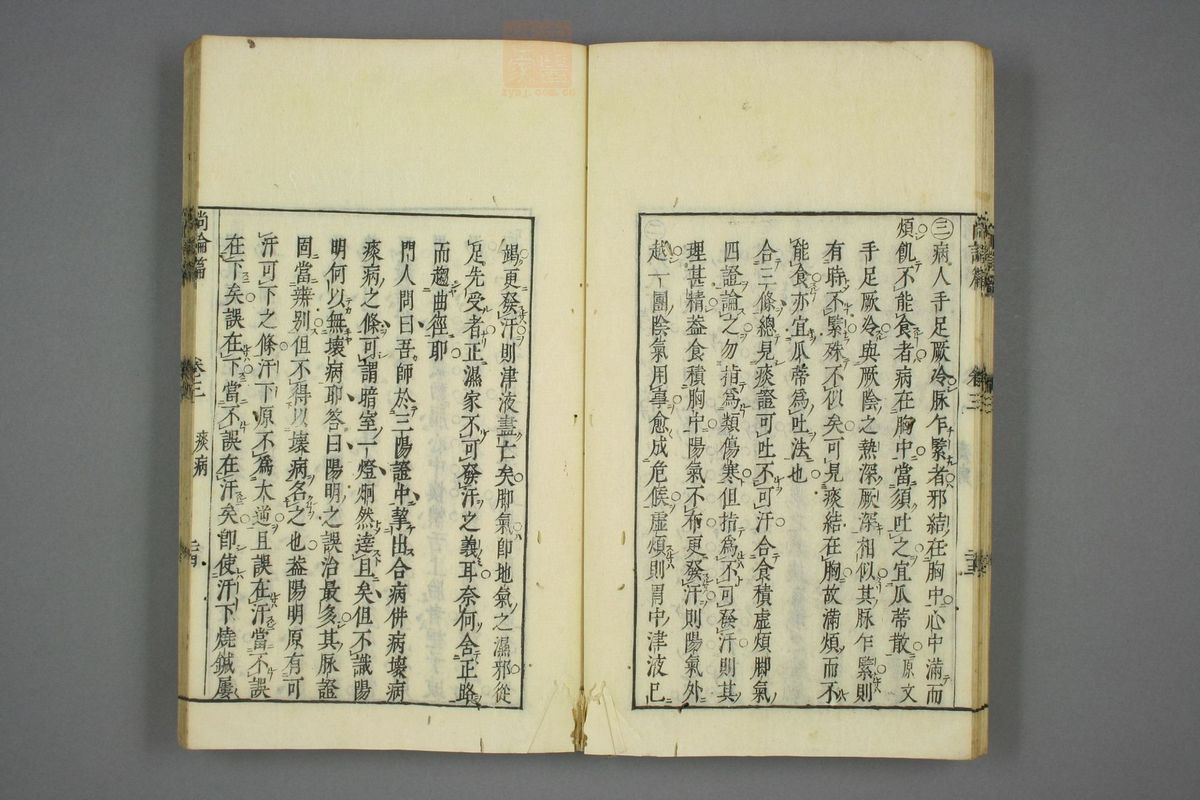 ㊂病人手足厥冷脉乍緊者邪結在胸中心中滿而
煩飢不能食者病在胸中當須吐之宜瓜蒂散原文
手足厥冷與厥陰之熱深厥深相似其脉乍緊則
有時不緊殊不似矣可見痰結在胸故滿煩而不
能食亦宜瓜蒂爲吐法也
合三條總見痰證可吐不可汗合食積虛煩脚氣
四證論之勿指爲類傷寒但指爲不可發汗則其
理甚精葢食積胸中陽氣不布更發汗則陽氣外
越一團陰氣用事愈成危候虛煩則胃中津液已
竭更發汗則津液盡亡矣脚氣卽地氣之濕邪從
足先受者正濕家不可發汗之義耳奈何舍正路
而趨曲徑耶
門人問曰吾師於三陽證中挈出合病併病壞病
痰病之條可謂暗室一燈炯然達旦矣但不識陽
明何以無壞病耶答曰陽明之誤治最多其脉證
固當辨别但不得以壞病名之也葢陽明原有可
汗可下之條汗下原不爲大逆且誤在汗當不誤
在下矣誤在下當不誤在汗矣卽使汗下燒鍼屢
尚論篇
卷三
痰病
二十四